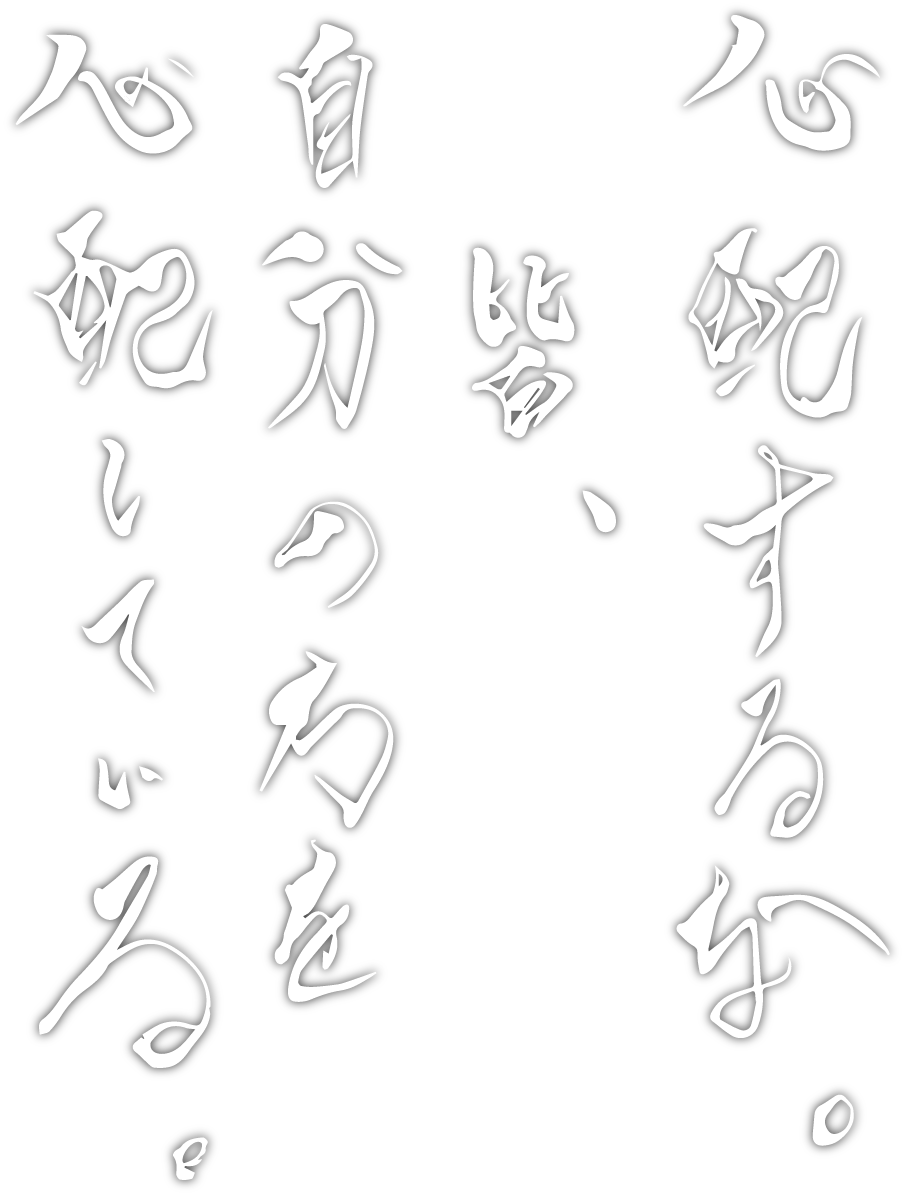 心配するな。
皆、
自分の初を
心配している。